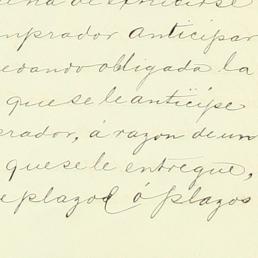 de extenderse
mprador anticipar
edando obligada la
que se le antiïpe
rador, á razon de un
que se le entregue,
e plazo ó plazos